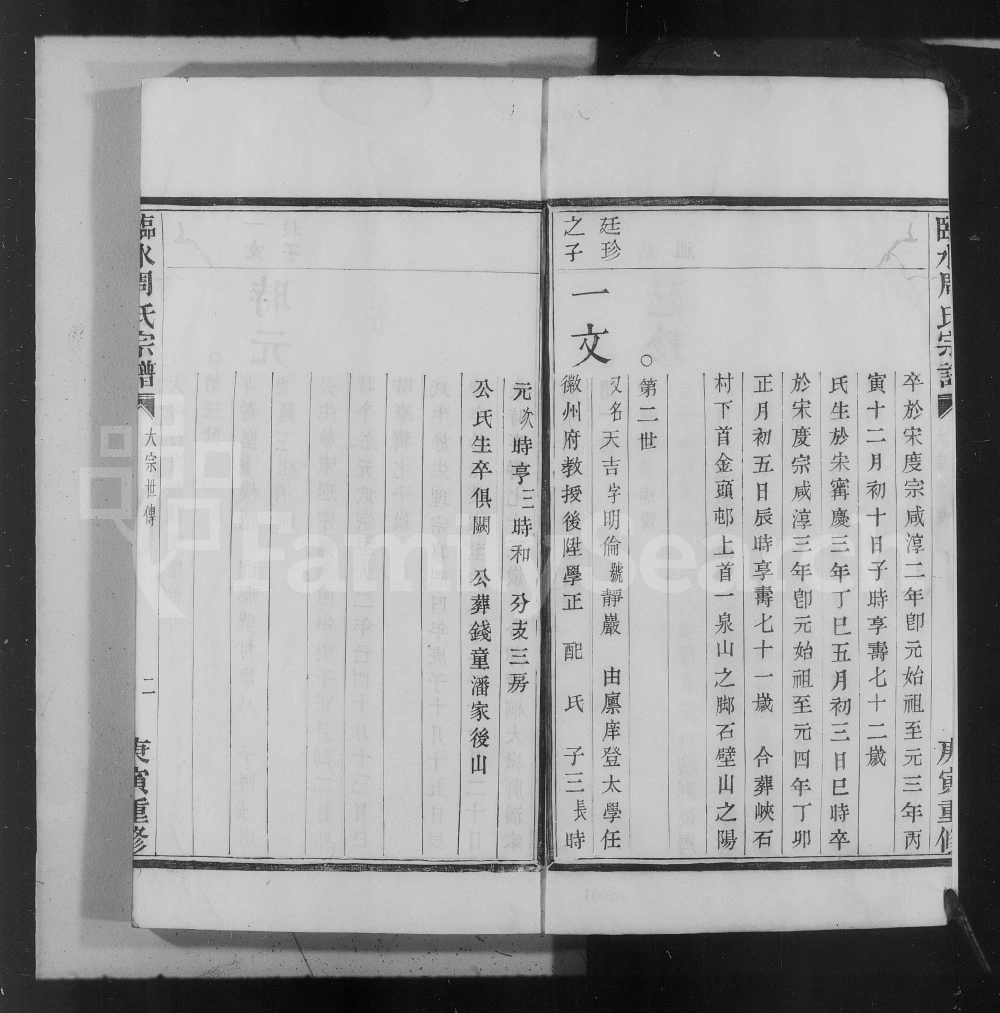 卒於宋度宗咸淳二年卽元始祖至元三年丙
寅十二月初十日子時享壽七十二歲
氏生於宋寗慶三年丁巳五月初三日巳時卒
於宋慶宗咸淳三年卽元始祖至元四年丁卯
正月初五日辰時享壽七十一歲 合葬峽石
村下首金頭邨上首一泉山之脚石壁山之陽
○第二世
廷珍
之子
一文
又名天吉字明倫號靜巖 由廩庠登太學任
徽州府教授後陞學正 配 氏 子三長時
元次時亨三時和 分支三房
公氏生卒俱闕 公葬錢童潘家後山
臨水周氏宗譜
大宗世傳
二
庚寅重修
臨水周氏宗譜
庚寅重修
FamilySearch